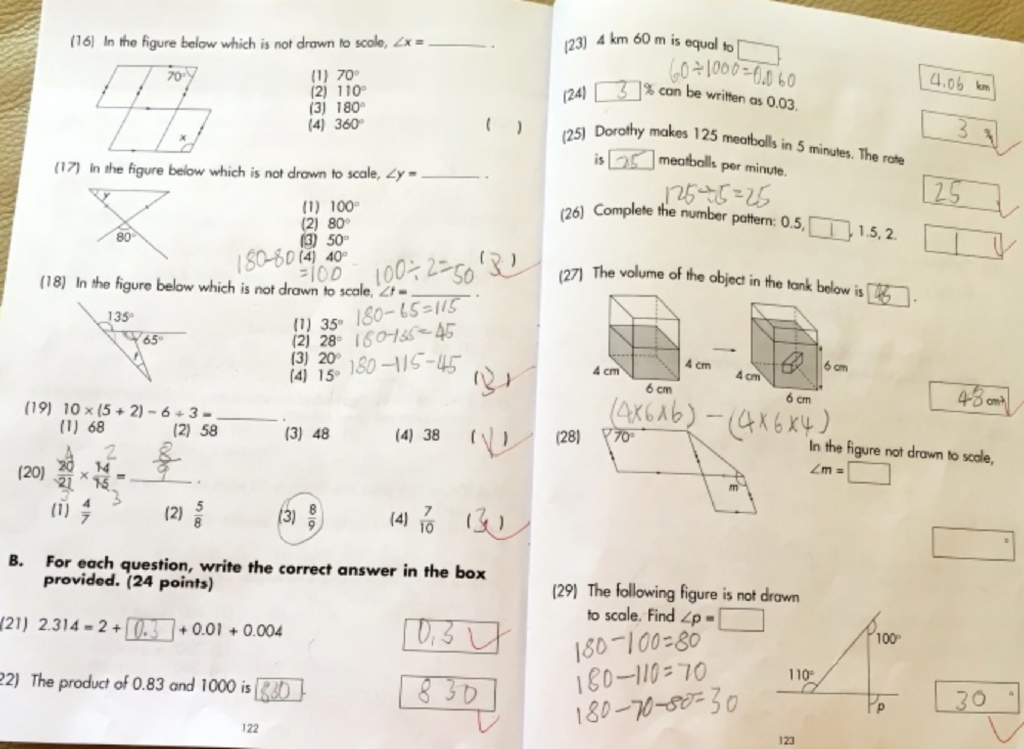 (16) In the figure below which is not drawn to scale, ∠x = ______ .
70°
x
(1) 70°
(2) 110°
(3) 180°
(4) 360°
( )
(17) In the figure below which is not drawn to scale, ∠y = ______ .
y
80°
(1) 100°
(2) 80°
(3) 50°
(4) 40°
180-80
=100
100÷2=50
(3)
(18) In the figure below which is not drawn to scale, ∠t = ______ .
135°
65°
t
(1) 35°
(2) 28°
(3) 20°
(4) 15°
180-65=115
180-135=45
180-115-45
(3)
(19) 10 × (5 + 2) − 6 ÷ 3 = ______ .
(1) 68 (2) 58 (3) 48 (4) 38 (1)
4 2 8
(20) 20/21 × 14/15 = ______ .
3 3 9
(1) 4/7 (2) 5/8 (3) 8/9 (4) 7/10 (3)
B. For each question, write the correct answer in the box
provided. (24 points)
(21) 2.314 = 2 + 0.3 + 0.01 + 0.004
0.3
22) The product of 0.83 and 1000 is 830.
830
122
(23) 4 km 60 m is equal to .
60÷1000=0.060
4.06 km
(24) 3 % can be written as 0.03.
3 %
(25) Dorothy makes 125 meatballs in 5 minutes. The rate
is 25 meatballs per minute.
125÷5=25
25
(26) Complete the number pattern: 0.5, 1, 1.5, 2.
1
(27) The volume of the object in the tank below is 48 .
4 cm
6 cm
4 cm
4 cm
6 cm
6 cm
48 cm³
(4×6×6) − (4×6×4)
(28)
70°
m
In the figure not drawn to scale,
∠m =
°
(29) The following figure is not drawn
to scale. Find ∠p =
180-100=80
180-110=70
180-70-80=30
100°
110°
p
30 °
123